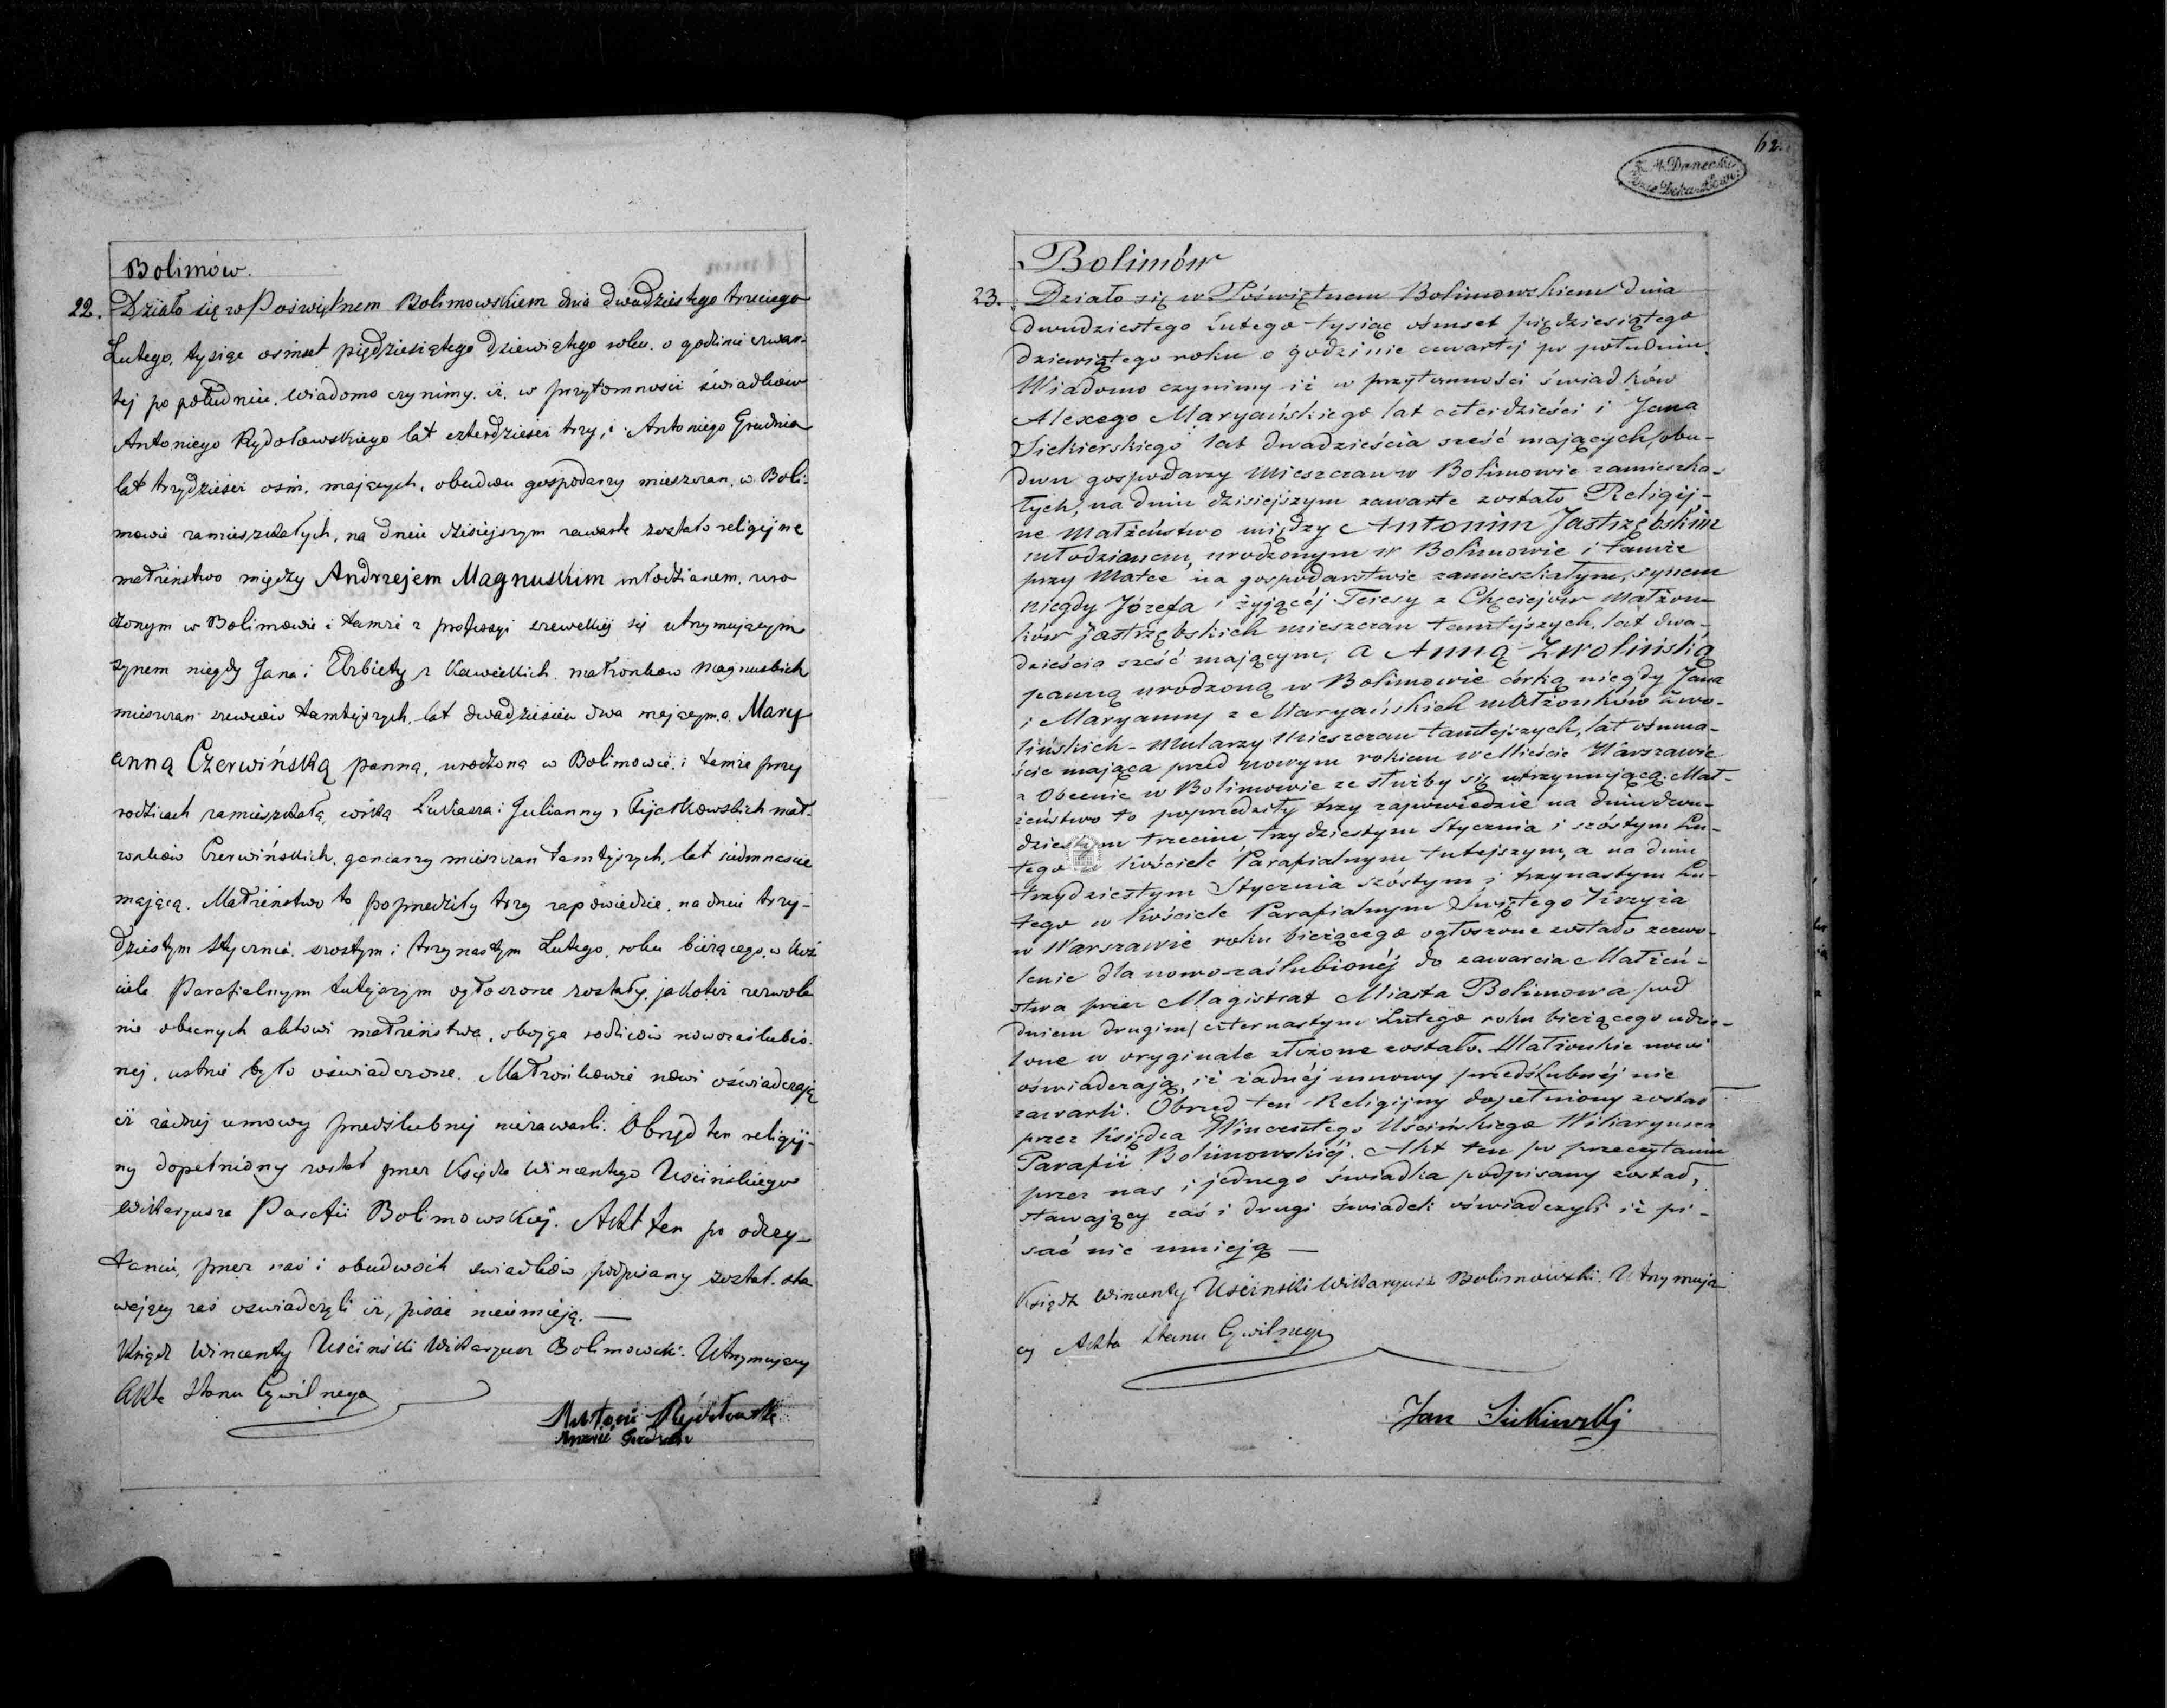 Bolimów.
22. Działo się w Poświętnem Bolimowskiem dnia dwudziestego trzeciego
Lutego, tysiąc osimset piędziesiątego dziewiątego roku, o godzinie czwar-
tej po południu. Wiadomo czynimy, iż, w przytomności świadków
Antoniego Rydołowskiego lat czterdzieści trzy, i Antoniego Grudnia
lat trzydzieści ośm, mających, obudwu gospodarzy mieszczan, w Boli-
mowie zamieszkałych, na dniu dzisiejszym zawarte zostało religijne
małżeństwo między Andrzejem Magnuskim młodzianem, uro
dzonym w Bolimowie i tamże z professyi szewckiej się utrzymującym
synem niegdy Jana i Elżbiety z Kaweckich małżonków Magnuskich
mieszczan szewców tamtejszych, lat dwadzieścia dwa mającym, a Mary
anną Czerwińską panną, urodzoną w Bolimowie, i tamże przy
rodzicach zamieszkałą, córką Łukasza i Julianny z Fijałkowskich mał-
żonków Czerwińskich, garncarzy mieszczan tamtejszych, lat siedmnaście
mającą. Małżeństwo to poprzedziły trzy zapowiedzie, na dniu trzy-
dziestym Stycznia, szóstym i trzynastym Lutego, roku bieżącego, w Koś
ciele Parafialnym tutejszym ogłoszone zostały, jakoteż zezwole
nie obecnych aktowi małżeństwa, obojga rodziców nowozaślubio-
nej, ustnie było oświadczone. Małżonkowie nowi oświadczają
iż żadnej umowy przedślubnej niezawarli. Obrzęd ten religij-
ny dopełniony został przez Księdza Wincentego Uścińskiego
Wikaryusza Parafii Bolimowskiej. Akt ten po odczy-
taniu, przez nas i obudwóch świadków podpisany został, sta
wający zaś oświadczyli iż, pisać nieumieją. —
Ksiądz Wincenty Uściński Wikaryusz Bolimowski. Utrzymujący
Akta Stanu Cywilnego
Antoni Rydołowski
62.
Bolimów
23. Działo się w Poświętnem Bolimowskiem dnia
dwudziestego Lutego tysiąc ośmset pięćdziesiątego
dziewiątego roku o godzinie czwartej po południu.
Wiadomo czynimy iż w przytomności świadków
Alexego Maryańskiego lat czterdzieści i Jana
Siekierskiego lat dwadzieścia sześć mających, obu-
dwu gospodarzy Mieszczan w Bolimowie zamieszka-
łych, na dniu dzisiejszym zawarte zostało Religij-
ne Małżeństwo między Antonim Jastrzębskim
młodzianem, urodzonym w Bolimowie i tamże
przy Matce na gospodarstwie zamieszkałym, synem
niegdy Józefa i żyjącéj Teresy z Chęciejów Małżon-
ków Jastrzębskich mieszczan tamtejszych, lat dwa-
dzieścia sześć mającym, a Anną Zwolińską
panną urodzoną w Bolimowie córką niegdy Jana
i Maryanny z Maryańskich Małżonków Zwo-
lińskich - Mularzy Mieszczan tamtejszych, lat ośmna-
ście mającą przed nowym rokiem w Mieście Warszawie
a Obecnie w Bolimowie ze służby się utrzymującą. Mał-
żeństwo to poprzedziły trzy zapowiedzie na dniu dwu-
dziestym trzecim, trzydziestym Stycznia i szóstym Lu-
tego w Kościele Parafialnym tutejszym, a na dniu
trzydziestym Stycznia szóstym i trzynastym Lu-
tego w Kościele Parafialnym Świętego Krzyża
w Warszawie roku bieżącego ogłoszone zostało zezwo-
lenie dla nowo-zaślubionéj do zawarcia Małżeń-
stwa przez Magistrat Miasta Bolimowa pod
dniem drugim/czternastym Lutego roku bieżącego udzie-
lone w oryginale złożone zostało. Małżonkie nowi
oświadczają, iż żadnéj umowy przedślubnéj nie
zawarli. Obrzęd ten Religijny dopełniony został
przez Księdza Wincentego Uścińskiego Wikaryusza
Parafii Bolimowskiéj. Akt ten po przeczytaniu
przez nas i jednego świadka podpisany został,
stawający zaś i drugi świadek oświadczyli iż pi-
sać nie umieją —
Ksiądz Wincenty Uściński Wikaryusz Bolimowski. Utrzymują
cy Akta Stanu Cywilnego
Jan Siekierski